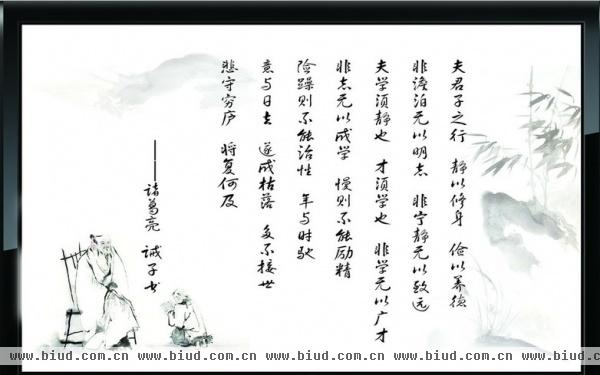 www.biud.com.cn www.biud.com.cn www.biud.com.cn www.biud.com.cn
夫君子之行 静以修身 俭以养德
非澹泊无以明志 非宁静无以致远
夫学须静也 才须学也 非学无以广才
非志无以成学 慢则不能励精
险躁则不能治性 年与时驰
意与日去 遂成枯落 多不接世
悲守穷庐 将复何及
——诸葛亮 诫子书
www.biud.com.cn www.biud.com.cn www.biud.com.cn www.biud.com.cn